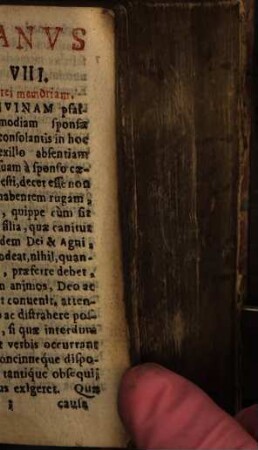 ANVS
VIII.
rei memoriam.
IVINAM psal-
modiam sponsæ
consolantis in hoc
exillo absentiam
suam à sponso cæ-
esti, decet esse non
habentem rugam,
, quippe cùm sit
filia, quæ canitur
dem Dei & Agni,
odeat, nihil, quan-
, præferre debet,
n animos, Deo ac
t conuenit, atten-
o ac distrahere pos-
, si quæ interdum
t verbis occurrant
oncinneque dispo-
tantique obsequij
us exigeret. Quæ
causa